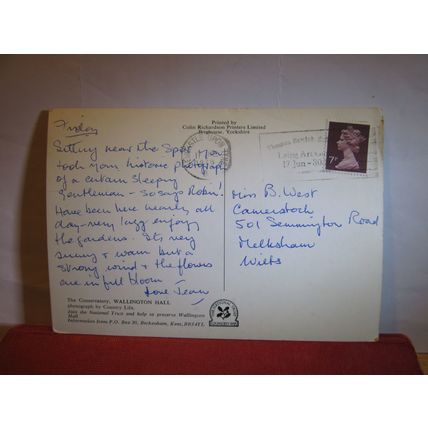 Printed by
Colin Richardson Printers Limited
Brighouse, Yorkshire
Friday
Sitting near the spot you
took your historic photograph
of a certain sleeping
gentleman - so says Robin!
Have been here nearly all
day - very lazy enjoying
the gardens. It's very
sunny & warm but a
strong wind & the flowers
are in full bloom
Love Jean
Miss B. West
Camerstock
501 Semmington Road
Melksham
Wilts
Thomas Bewick
Laing Art
17 Jun - 30
7P
The Conservatory, WALLINGTON HALL
photograph by Country Life.
Join the National Trust and help to preserve Wallington
Hall
Information from P.O. Box 30, Beckenham, Kent, BR34TL